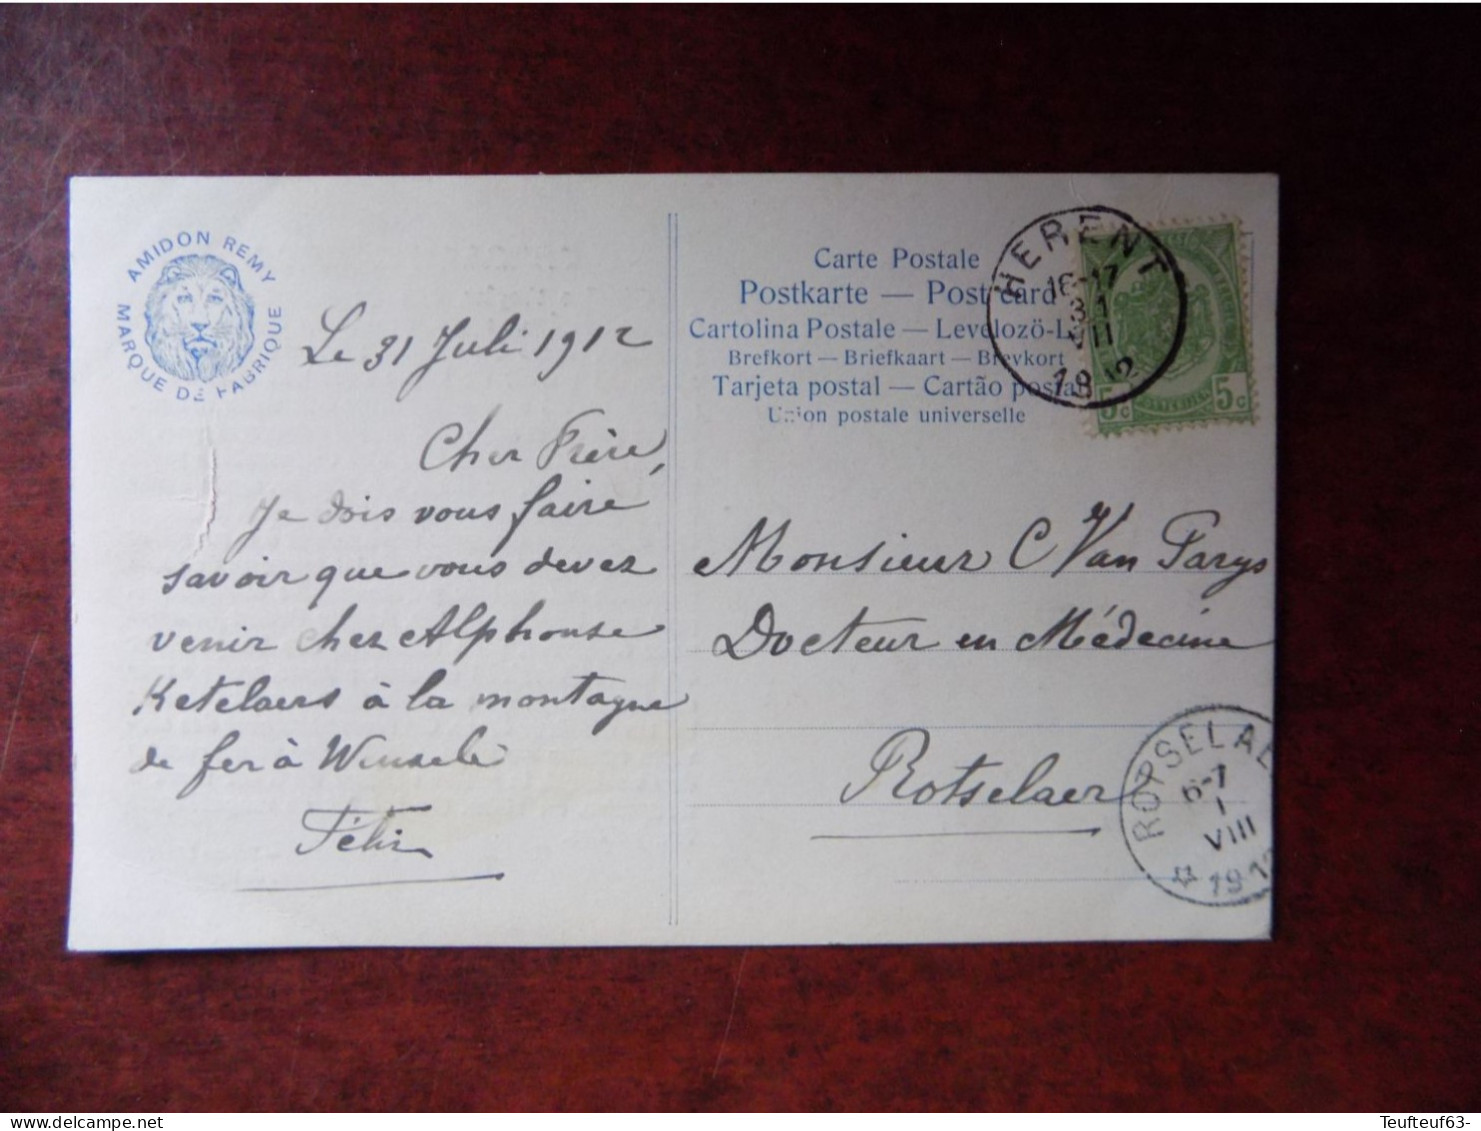 AMIDON REMY
MARQUE DE FABRIQUE
Le 31 Juli 1912
Cher Frère,
Je dois vous faire
savoir que vous devez
venir chez Alphonse
Ketelaers à la montagne
de fer à Winxele
Félix
Carte Postale
Postkarte — Post card
Cartolina Postale — Levelozö-L
Brefkort — Briefkaart — Brevkort
Tarjeta postal — Cartão postal
Union postale universelle
HERENT
16-17
31
VII
1912
5c 5c
Monsieur C Van Parys
Docteur en Médecine
Rotselaer
ROTSELAE
6-7
1
VIII
1912
Teufteuf63-